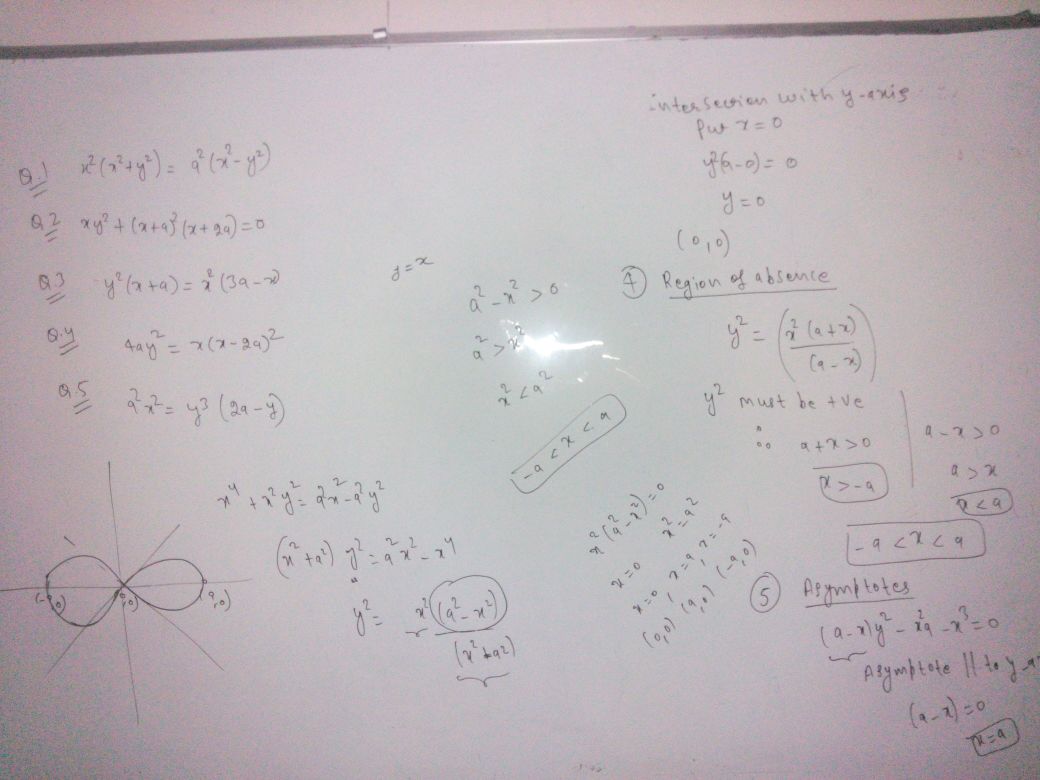 Q.1 x²(x²+y²) = a²(x²-y²)
Q2 xy² + (x+a)²(x+2a) = 0
Q3 y²(x+a) = x²(3a-x)
Q.4 4ay² = x(x-2a)²
Q.5 a²x² = y³(2a-y)
x⁴ + x²y² = a²x² - a²y²
(x²+a²) y² = a²x² - x⁴
y² = x²(a²-x²)
(x²+a²)
(-a,0)
(0,0)
(a,0)
y=x
a²-x² > 0
a² > x²
x² < a²
-a < x < a
x²(a²-x²) = 0
x=0 x² = a²
x=0, x=a, x=-a
(0,0) (a,0) (-a,0)
intersection with y-axis
Put x=0
y²(a-0) = 0
y=0
(0,0)
④ Region of absence
y² = (x²(a+x)
(a-x))
y² must be +ve
∴ a+x>0
x>-a
a-x>0
a>x
x<a
-a<x<a
⑤ Asymptotes
(a-x)y² - x²a - x³ = 0
Asymptote || to y-
(a-x)=0
x=a